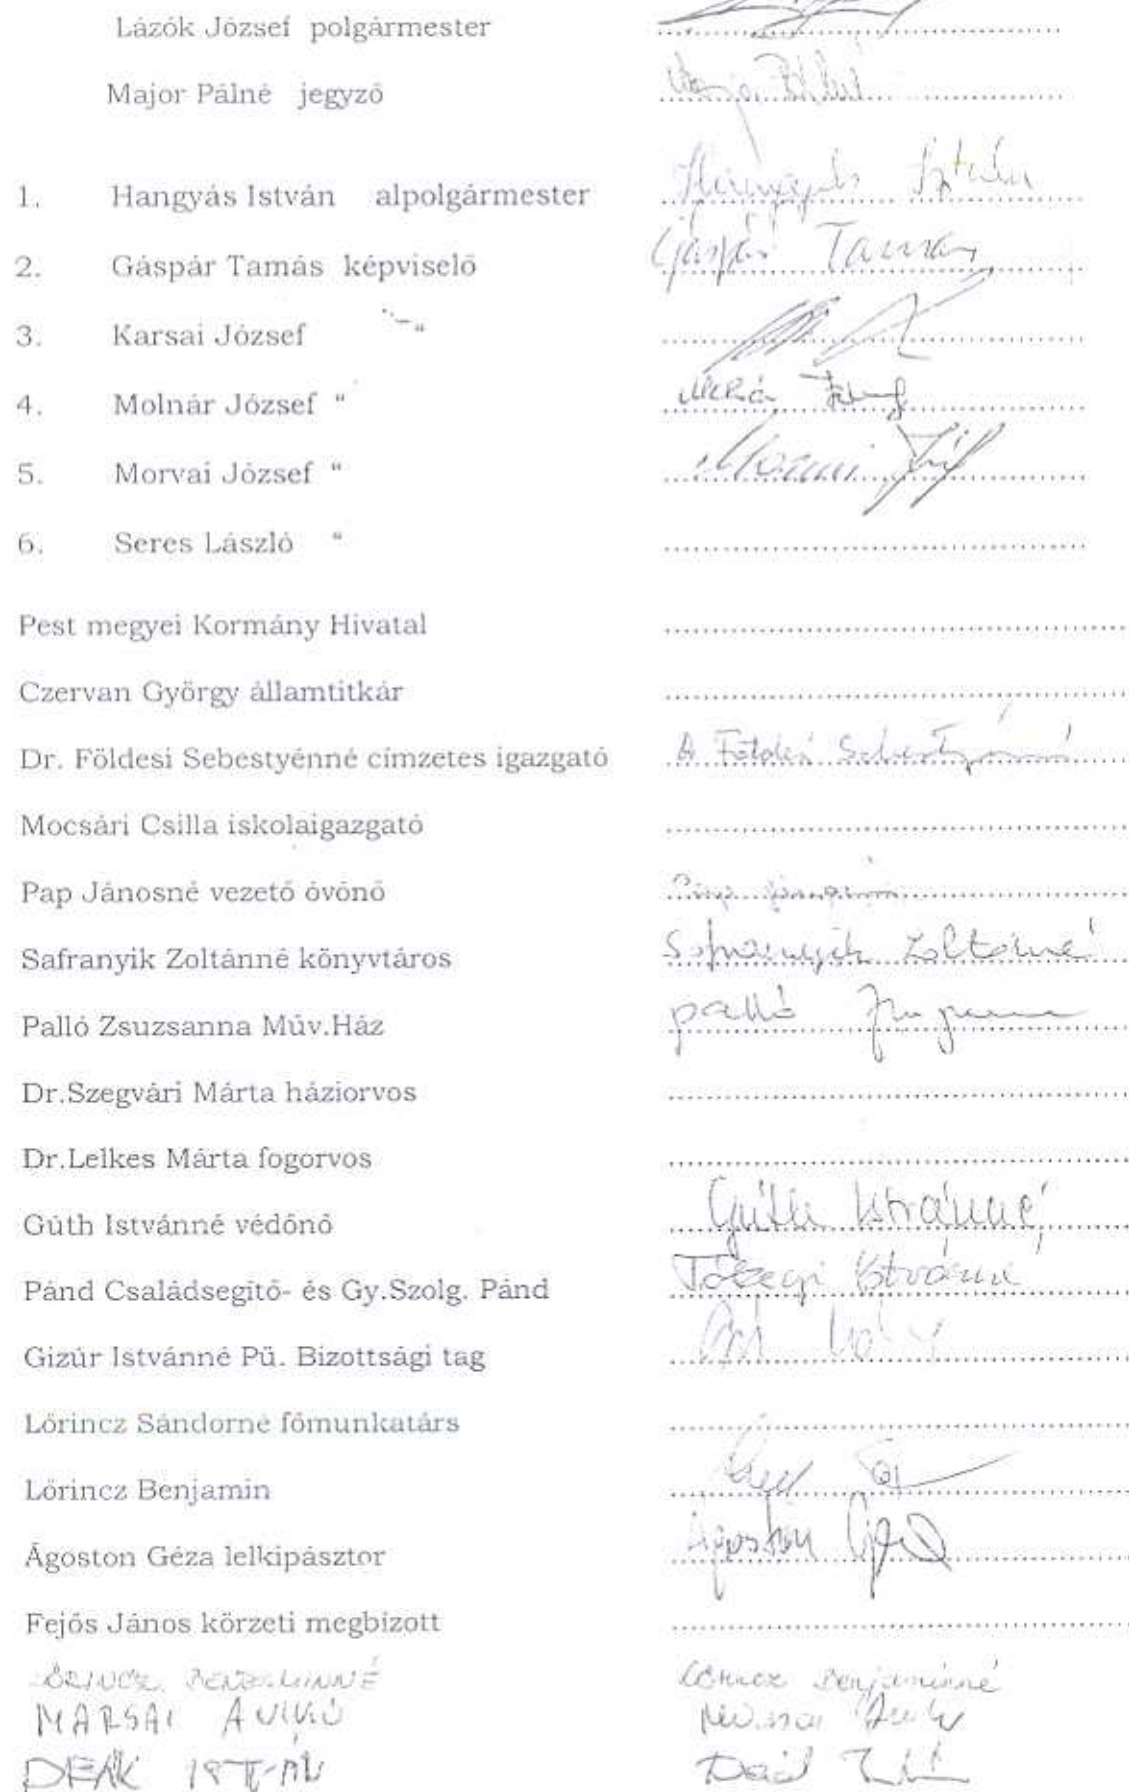 Lázók József polgármester
Major Pálné jegyző
1. Hangyás István alpolgármester Hangyás István
2. Gáspár Tamás képviselő Gáspár Tamás
3. Karsai József "-"
4. Molnár József "
5. Morvai József " Morvai József
6. Seres László "
Pest megyei Kormány Hivatal
Czervan György államtitkár
Dr. Földesi Sebestyénné címzetes igazgató Földesi Sebestyénné
Mocsári Csilla iskolaigazgató
Pap Jánosné vezető óvónő
Safranyik Zoltánné könyvtáros Safranyik Zoltánné
Palló Zsuzsanna Műv.Ház Palló Zsuzsanna
Dr.Szegvári Márta háziorvos
Dr.Lelkes Márta fogorvos
Gúth Istvánné védőnő Gúth Istvánné
Pánd Családsegítő- és Gy.Szolg. Pánd Istvánné
Gizúr Istvánné Pü. Bizottsági tag
Lőrincz Sándorné főmunkatárs
Lőrincz Benjamin
Ágoston Géza lelkipásztor Ágoston Géza
Fejős János körzeti megbízott
LŐRINCZ BENJAMINNÉ Lőrincz Benjaminné
MARSAI ANIKÓ Marsai Anikó
DEÁK ISTVÁN Deák István